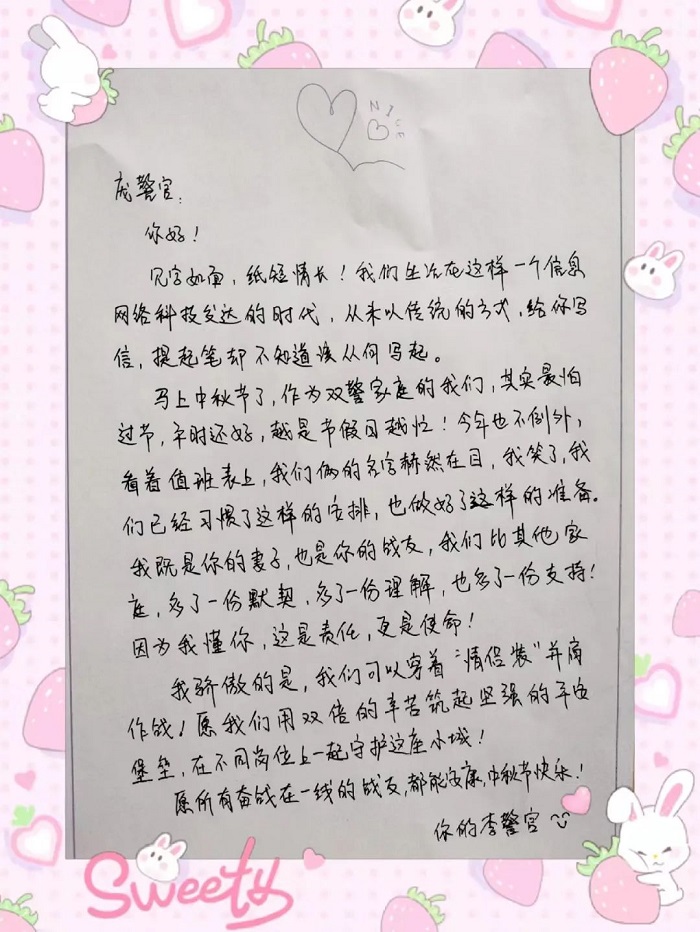 庞警官:
你好!
见字如面,纸短情长!我们生活在这样一个信息
网络科技发达的时代,从未以传统的方式,给你写
信,提起笔却不知道该从何写起。
马上中秋节了,作为双警家庭的我们,其实最怕
过节,平时还好,越是节假日越忙!今年也不例外,
看着值班表上,我们俩的名字赫然在目,我笑了,我
们已经习惯了这样的安排,也做好了这样的准备。
我既是你的妻子,也是你的战友,我们比其他家
庭,多了一份默契,多了一份理解,也多了一份支持!
因为我懂你,这是责任,更是使命!
我骄傲的是,我们可以穿着“情侣装”并肩
作战!愿我们用双倍的辛苦筑起坚强的平安
堡垒,在不同岗位上一起守护这座小城!
愿所有奋战在一线的战友,都能安康,中秋节快乐!
你的李警官
Sweety